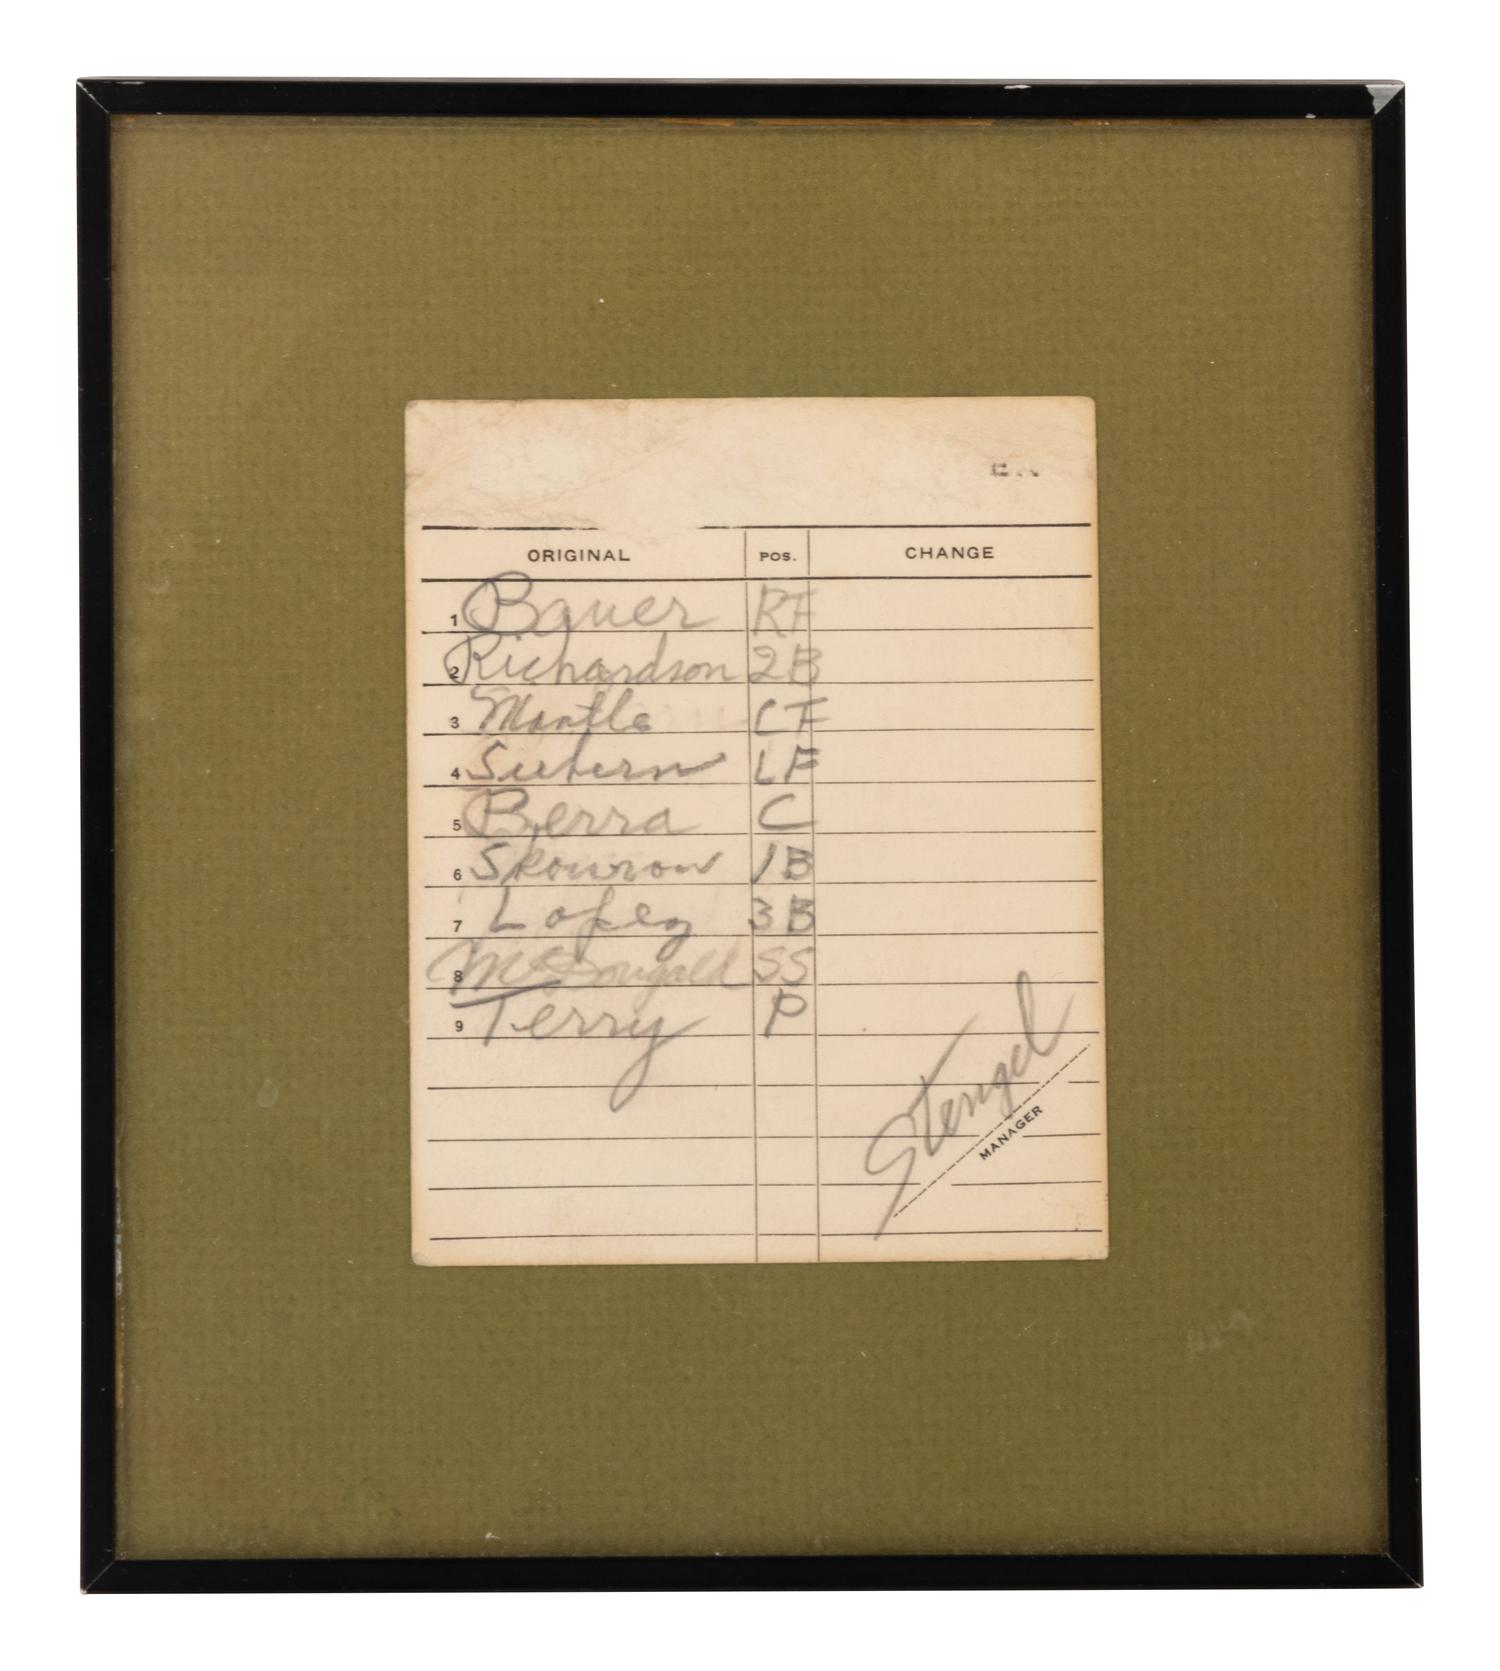 ORIGINAL POS. CHANGE
1 Bauer RF
2 Richardson 2B
3 Mantle CF
4 Siebern LF
5 Berra C
6 Skowron 1B
7 Lopez 3B
8 McDougald SS
9 Terry P
Stengel
MANAGER